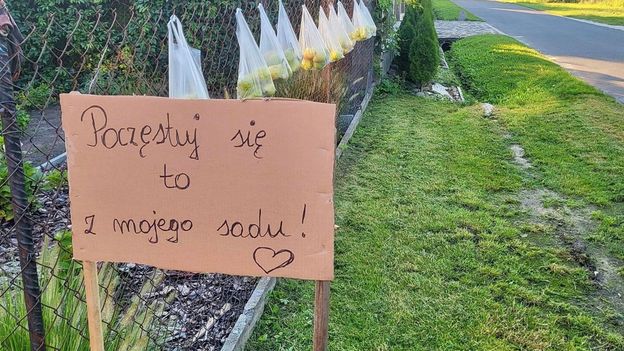 Poczęstuj się
to
z mojego sadu!